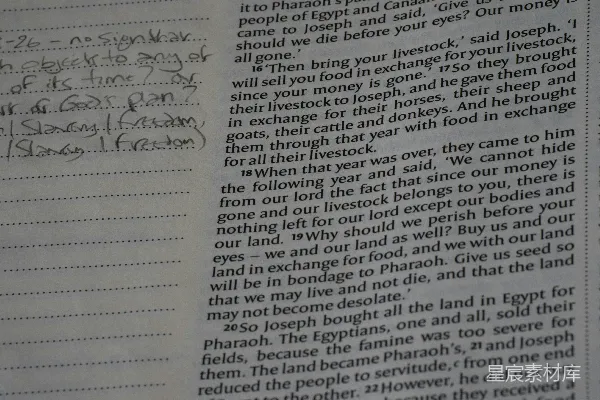 -26 - no sign that
objects to any of
of its time? Or
God's plan?
| Slavery | freedom,
| Slavery | freedom)
it to Pharaoh's
people of Egypt and Canaan
came to Joseph and said, 'Give us
should we die before your eyes? Our money is
all gone.'
16 'Then bring your livestock,' said Joseph. 'I
will sell you food in exchange for your livestock,
since your money is gone.' 17 So they brought
their livestock to Joseph, and he gave them food
in exchange for their horses, their sheep and
goats, their cattle and donkeys. And he brought
them through that year with food in exchange
for all their livestock.
18 When that year was over, they came to him
the following year and said, 'We cannot hide
from our lord the fact that since our money is
gone and our livestock belongs to you, there is
nothing left for our lord except our bodies and
our land. 19 Why should we perish before your
eyes – we and our land as well? Buy us and our
land in exchange for food, and we with our land
will be in bondage to Pharaoh. Give us seed so
that we may live and not die, and that the land
may not become desolate.'
20 So Joseph bought all the land in Egypt for
Pharaoh. The Egyptians, one and all, sold their
fields, because the famine was too severe for
them. The land became Pharaoh's, 21 and Joseph
reduced the people to servitude, c from one end
to the other. 22 However, he
because they received a
星宸素材库